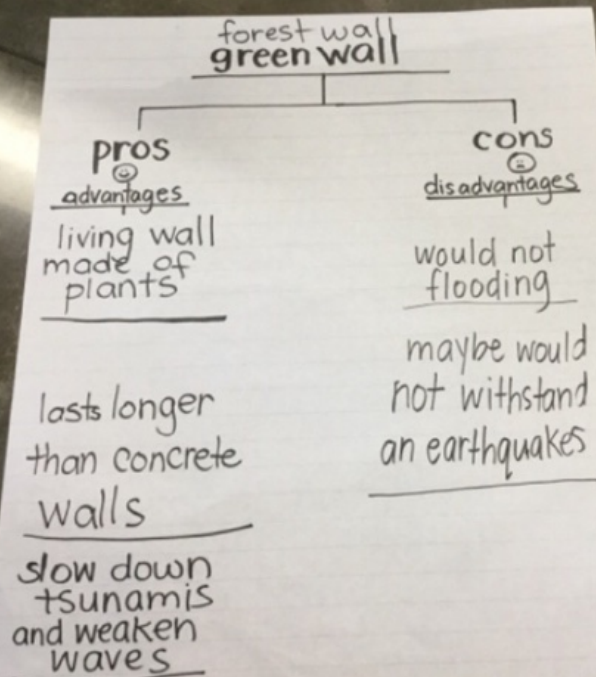 forest wall
green wall
pros
advantages
living wall
made of
plants
lasts longer
than concrete
walls
slow down
tsunamis
and weaken
waves
cons
disadvantages
would not
flooding
maybe would
not withstand
an earthquakes